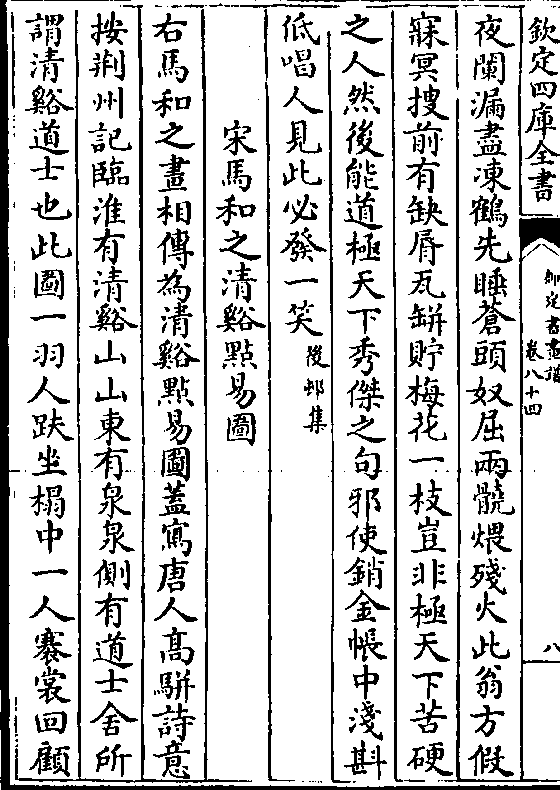 欽定四庫全書
御定書畫譜
卷八十四
八
夜闌漏盡凍鶴先睡蒼頭奴屈兩髐煨殘火此翁方假
寐冥搜前有缺脣瓦缾貯梅花一枝豈非極天下苦硬
之人然後能道極天下秀傑之句邪使銷金帳中淺斟
低唱人見此必發一笑後邨集
宋馬和之清谿點易圖
右馬和之畫相傳為清谿點易圖蓋寫唐人高駢詩意
按荆州記臨淮有清谿山山東有泉泉側有道士舍所
謂清谿道士也此圖一羽人趺坐榻中一人褰裳回顧